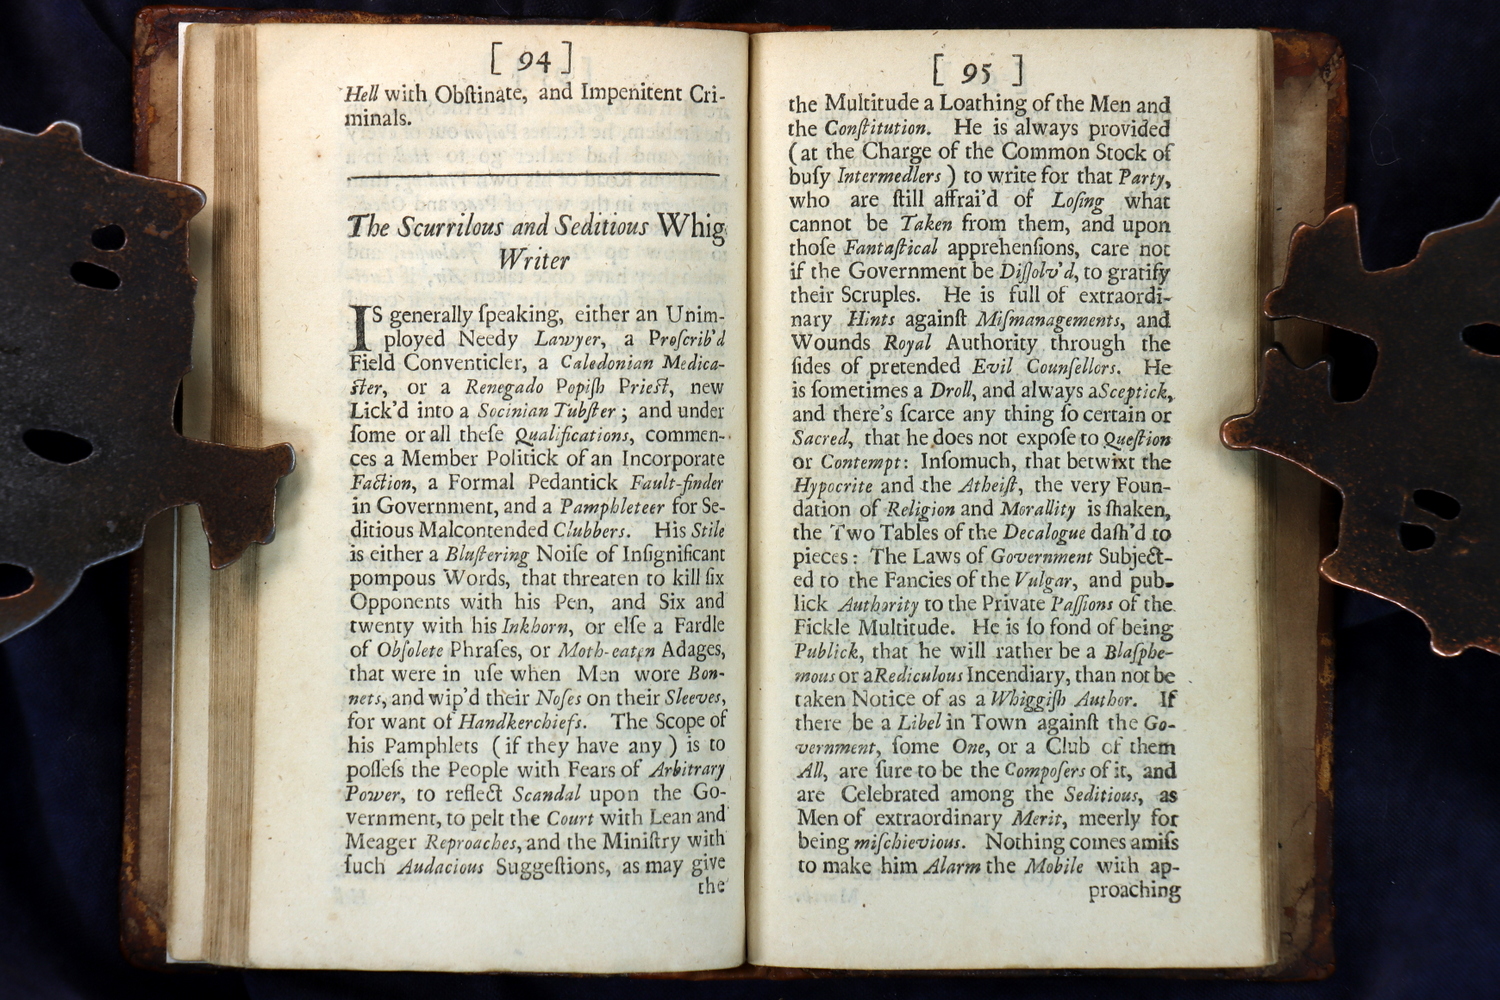 [ 94 ]
Hell with Obſtinate, and Impenitent Cri-
minals.
The Scurrilous and Seditious Whig
Writer
IS generally ſpeaking, either an Unim-
ployed Needy Lawyer, a Proſcrib'd
Field Conventicler, a Caledonian Medica-
ſter, or a Renegado Popiſh Prieſt, new
Lick'd into a Socinian Tubſter ; and under
ſome or all theſe Qualifications, commen-
ces a Member Politick of an Incorporate
Faction, a Formal Pedantick Fault-finder
in Government, and a Pamphleteer for Se-
ditious Malcontended Clubbers. His Stile
is either a Bluſtering Noiſe of Inſignificant
pompous Words, that threaten to kill ſix
Opponents with his Pen, and Six and
twenty with his Inkhorn, or elſe a Fardle
of Obſolete Phraſes, or Moth-eaten Adages,
that were in uſe when Men wore Bon-
nets, and wip'd their Noſes on their Sleeves,
for want of Handkerchiefs. The Scope of
his Pamphlets ( if they have any ) is to
poſſeſs the People with Fears of Arbitrary
Power, to reflect Scandal upon the Go-
vernment, to pelt the Court with Lean and
Meager Reproaches, and the Miniſtry with
ſuch Audacious Suggeſtions, as may give
the
[ 95 ]
the Multitude a Loathing of the Men and
the Conſtitution. He is always provided
( at the Charge of the Common Stock of
buſy Intermedlers ) to write for that Party,
who are ſtill affrai'd of Loſing what
cannot be Taken from them, and upon
thoſe Fantaſtical apprehenſions, care not
if the Government be Diſſolv'd, to gratify
their Scruples. He is full of extraordi-
nary Hints againſt Miſmanagements, and
Wounds Royal Authority through the
ſides of pretended Evil Counſellors. He
is ſometimes a Droll, and always a Sceptick,
and there's ſcarce any thing ſo certain or
Sacred, that he does not expoſe to Queſtion
or Contempt: Inſomuch, that betwixt the
Hypocrite and the Atheiſt, the very Foun-
dation of Religion and Morallity is ſhaken,
the Two Tables of the Decalogue daſh'd to
pieces : The Laws of Government Subject-
ed to the Fancies of the Vulgar, and pub-
lick Authority to the Private Paſſions of the
Fickle Multitude. He is ſo fond of being
Publick, that he will rather be a Blaſphe-
mous or a Rediculous Incendiary, than not be
taken Notice of as a Whiggiſh Author. If
there be a Libel in Town againſt the Go-
vernment, ſome One, or a Club of them
All, are ſure to be the Compoſers of it, and
are Celebrated among the Seditious, as
Men of extraordinary Merit, meerly for
being miſchievious. Nothing comes amiſs
to make him Alarm the Mobile with ap-
proaching